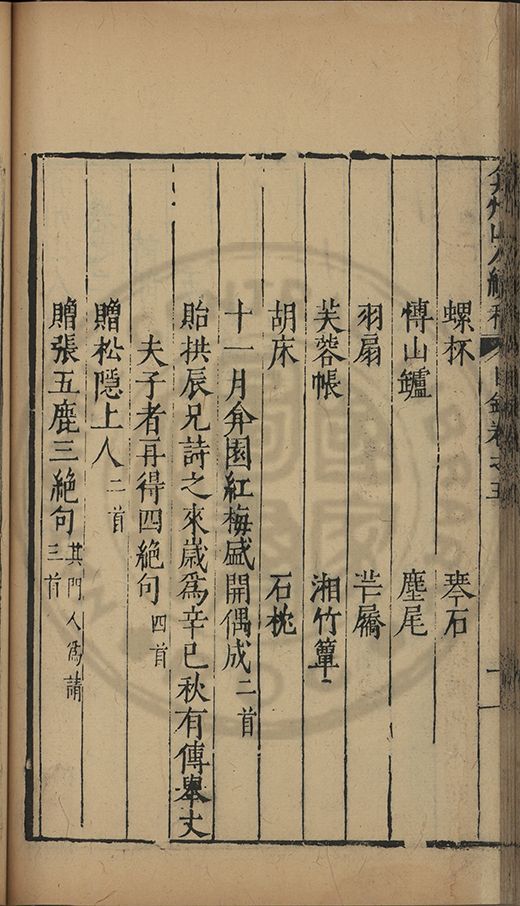 弇州山人續稿 目錄卷之五
螺杯 琴石
博山鑪 麈尾
羽扇 芒屩
芙蓉帳 湘竹簟
胡床 石枕
十一月弇園紅梅盛開偶成二首
貽拱辰兄詩之來歲為辛巳秋有傳舉丈
夫子者再得四絕句四首
贈松隱上人二首
贈張五鹿三絕句其門人為請三首